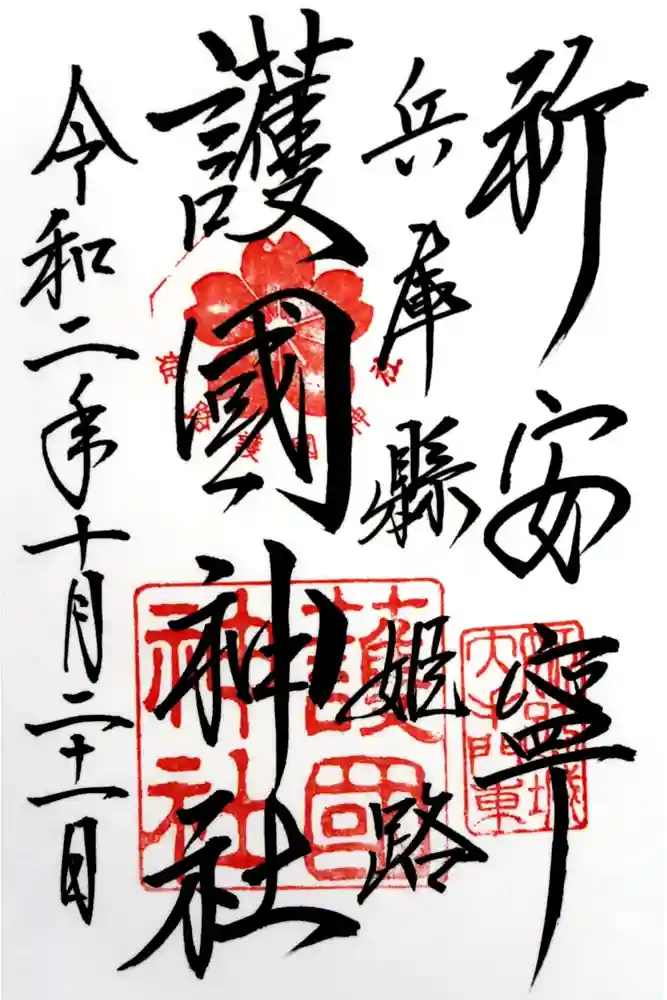 祈安寧
兵庫縣姫路
護國神社
令和二年十月二十一日
姫路護國神社
護國神社
姫路城大手門東